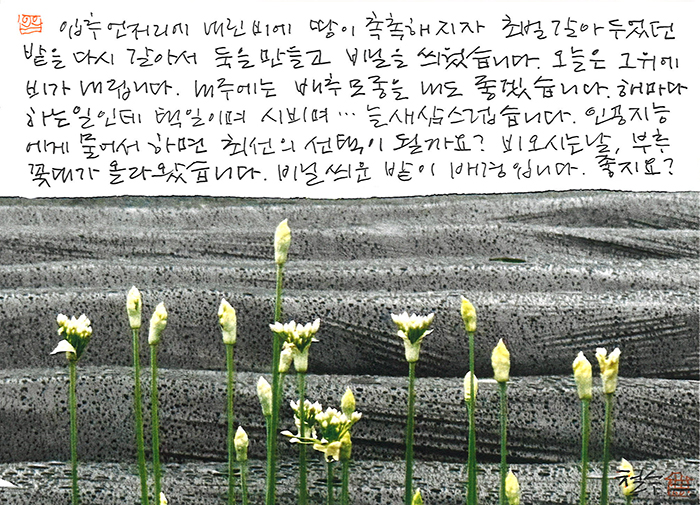 입추 언저리에 내린 비에 땅이 촉촉해지자 초벌 갈아 두었던
밭을 다시 갈아서 둑을 만들고 비닐을 씌웠습니다. 오늘은 그 위에
비가 내립니다. 내주에는 배추 모종을 내도 좋겠습니다. 해마다
하는 일인데 택일이며 시비며… 늘 새삼스럽습니다. 인공지능
에게 물어서 하면 최선의 선택이 될까요? 비오시는 날, 부추
꽃대가 올라왔습니다. 비닐 씌운 밭이 배경입니다. 좋지요?
철수